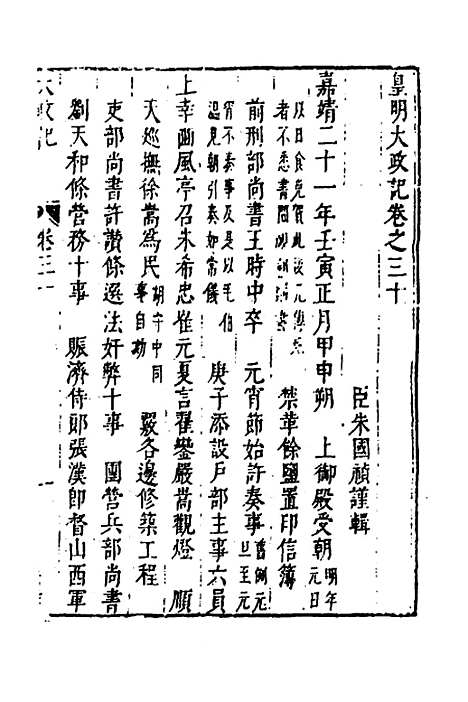 皇明大政記卷之三十
臣朱國禎謹輯
嘉靖二十一年壬寅正月甲申朔 上御殿受朝明年元日
以日食免賀 者不悉書 禁革餘鹽置印信簿
前刑部尚書王時中卒 元宵節始許奏事舊例元旦至元
宵不奏事及是以毛伯溫見朝引奏如常儀 庚子添設戶部主事六員
上幸豳風亭召朱希忠崔元夏言翟鑾嚴嵩觀燈 順
天巡撫徐嵩為民胡守中同事自劾 覈各邊修築工程
吏部尚書許讚條選法奸弊十事 團營兵部尚書
劉天和條營務十事 賑濟侍郎張漢即督山西軍
大政記 卷三十 一